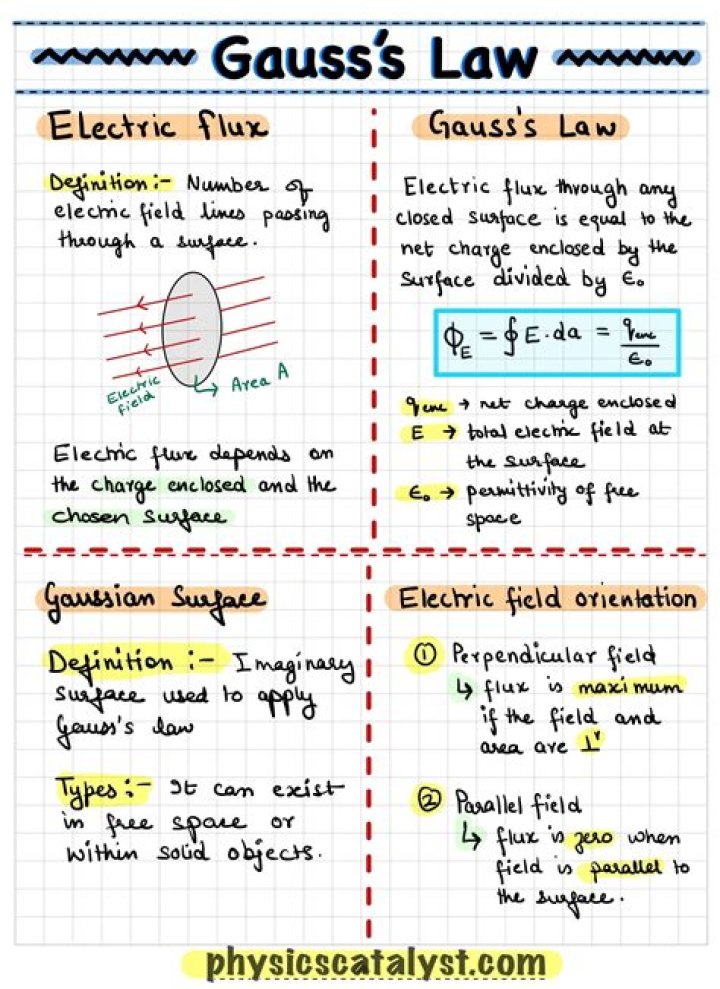 Gauss's Law
Electric flux
Definition:- Number of
electric field lines passing
through a surface.
Electric
field
Area A
Electric flux depends on
the charge enclosed and the
chosen surface
Gauss's Law
Electric flux through any
closed surface is equal to the
net charge enclosed by the
surface divided by ε₀
ϕ_E = ∮ E · da = q_enc / ε₀
q_enc → net charge enclosed
E → total electric field at
the surface
ε₀ → permittivity of free
space
Gaussian Surface
Definition :- Imaginary
surface used to apply
Gauss's law
Types:- It can exist
in free space or
within solid objects.
Electric field orientation
① Perpendicular field
↳ flux is maximum
if the field and
area are ⊥ʳ
② Parallel field
↳ flux is zero when
field is parallel to
the surface.
physicscatalyst.com